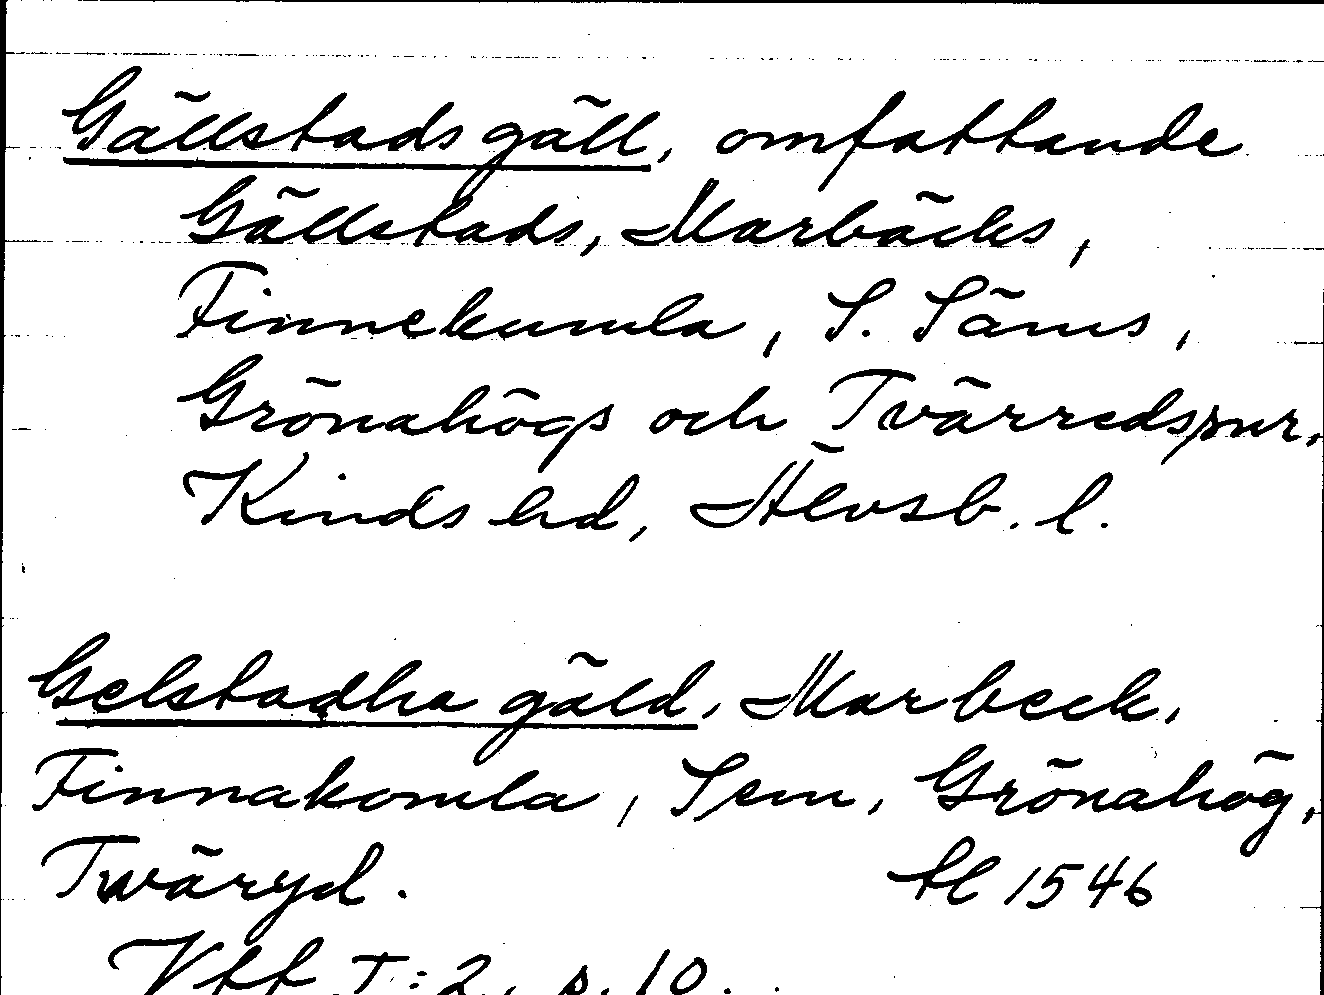 Gällstads gäll, omfattande
Gällstads, Marbäcks,
Finnekumla, S. Säms,
Grönahögs och Tvärredssnr,
Kinds hd, Älvsb. l.
Gelstadha gäld, Marbeck,
Finnakomla, Sem, Grönahög,
Twäryd. tl 1546
Vtt I:2, s. 10.